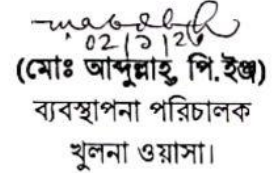 02/১/২৫
(মোঃ আব্দুল্লাহ্, পি.ইঞ্জ)
ব্যবস্থাপনা পরিচালক
খুলনা ওয়াসা।